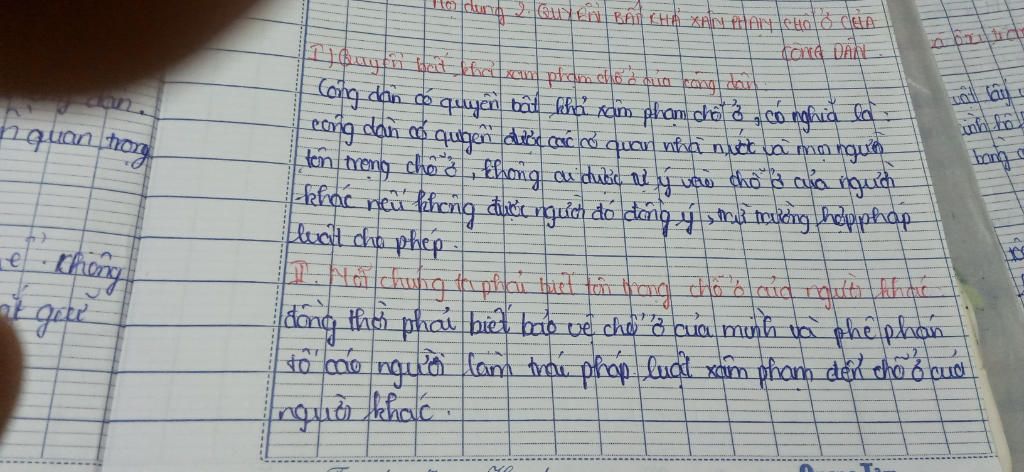 Nội dung 2. QUYỀN BẤT KHẢ XÂM PHẠM CHỖ Ở CỦA
CÔNG DÂN
I) Quyền bất khả xâm phạm chỗ ở của công dân
Công dân có quyền bất khả xâm phạm chỗ ở, có nghĩa là:
công dân có quyền được các cơ quan nhà nước và mọi người
tôn trọng chỗ ở, không ai được tự ý vào chỗ ở của người
khác nếu không được người đó đồng ý, trừ trường hợp pháp
luật cho phép.
II. Mỗi chúng ta phải biết tôn trọng chỗ ở của người khác
đồng thời phải biết bảo vệ chỗ ở của mình và phê phán
tố cáo người làm trái pháp luật xâm phạm đến chỗ ở của
người khác.
dân.
quan trọng
không